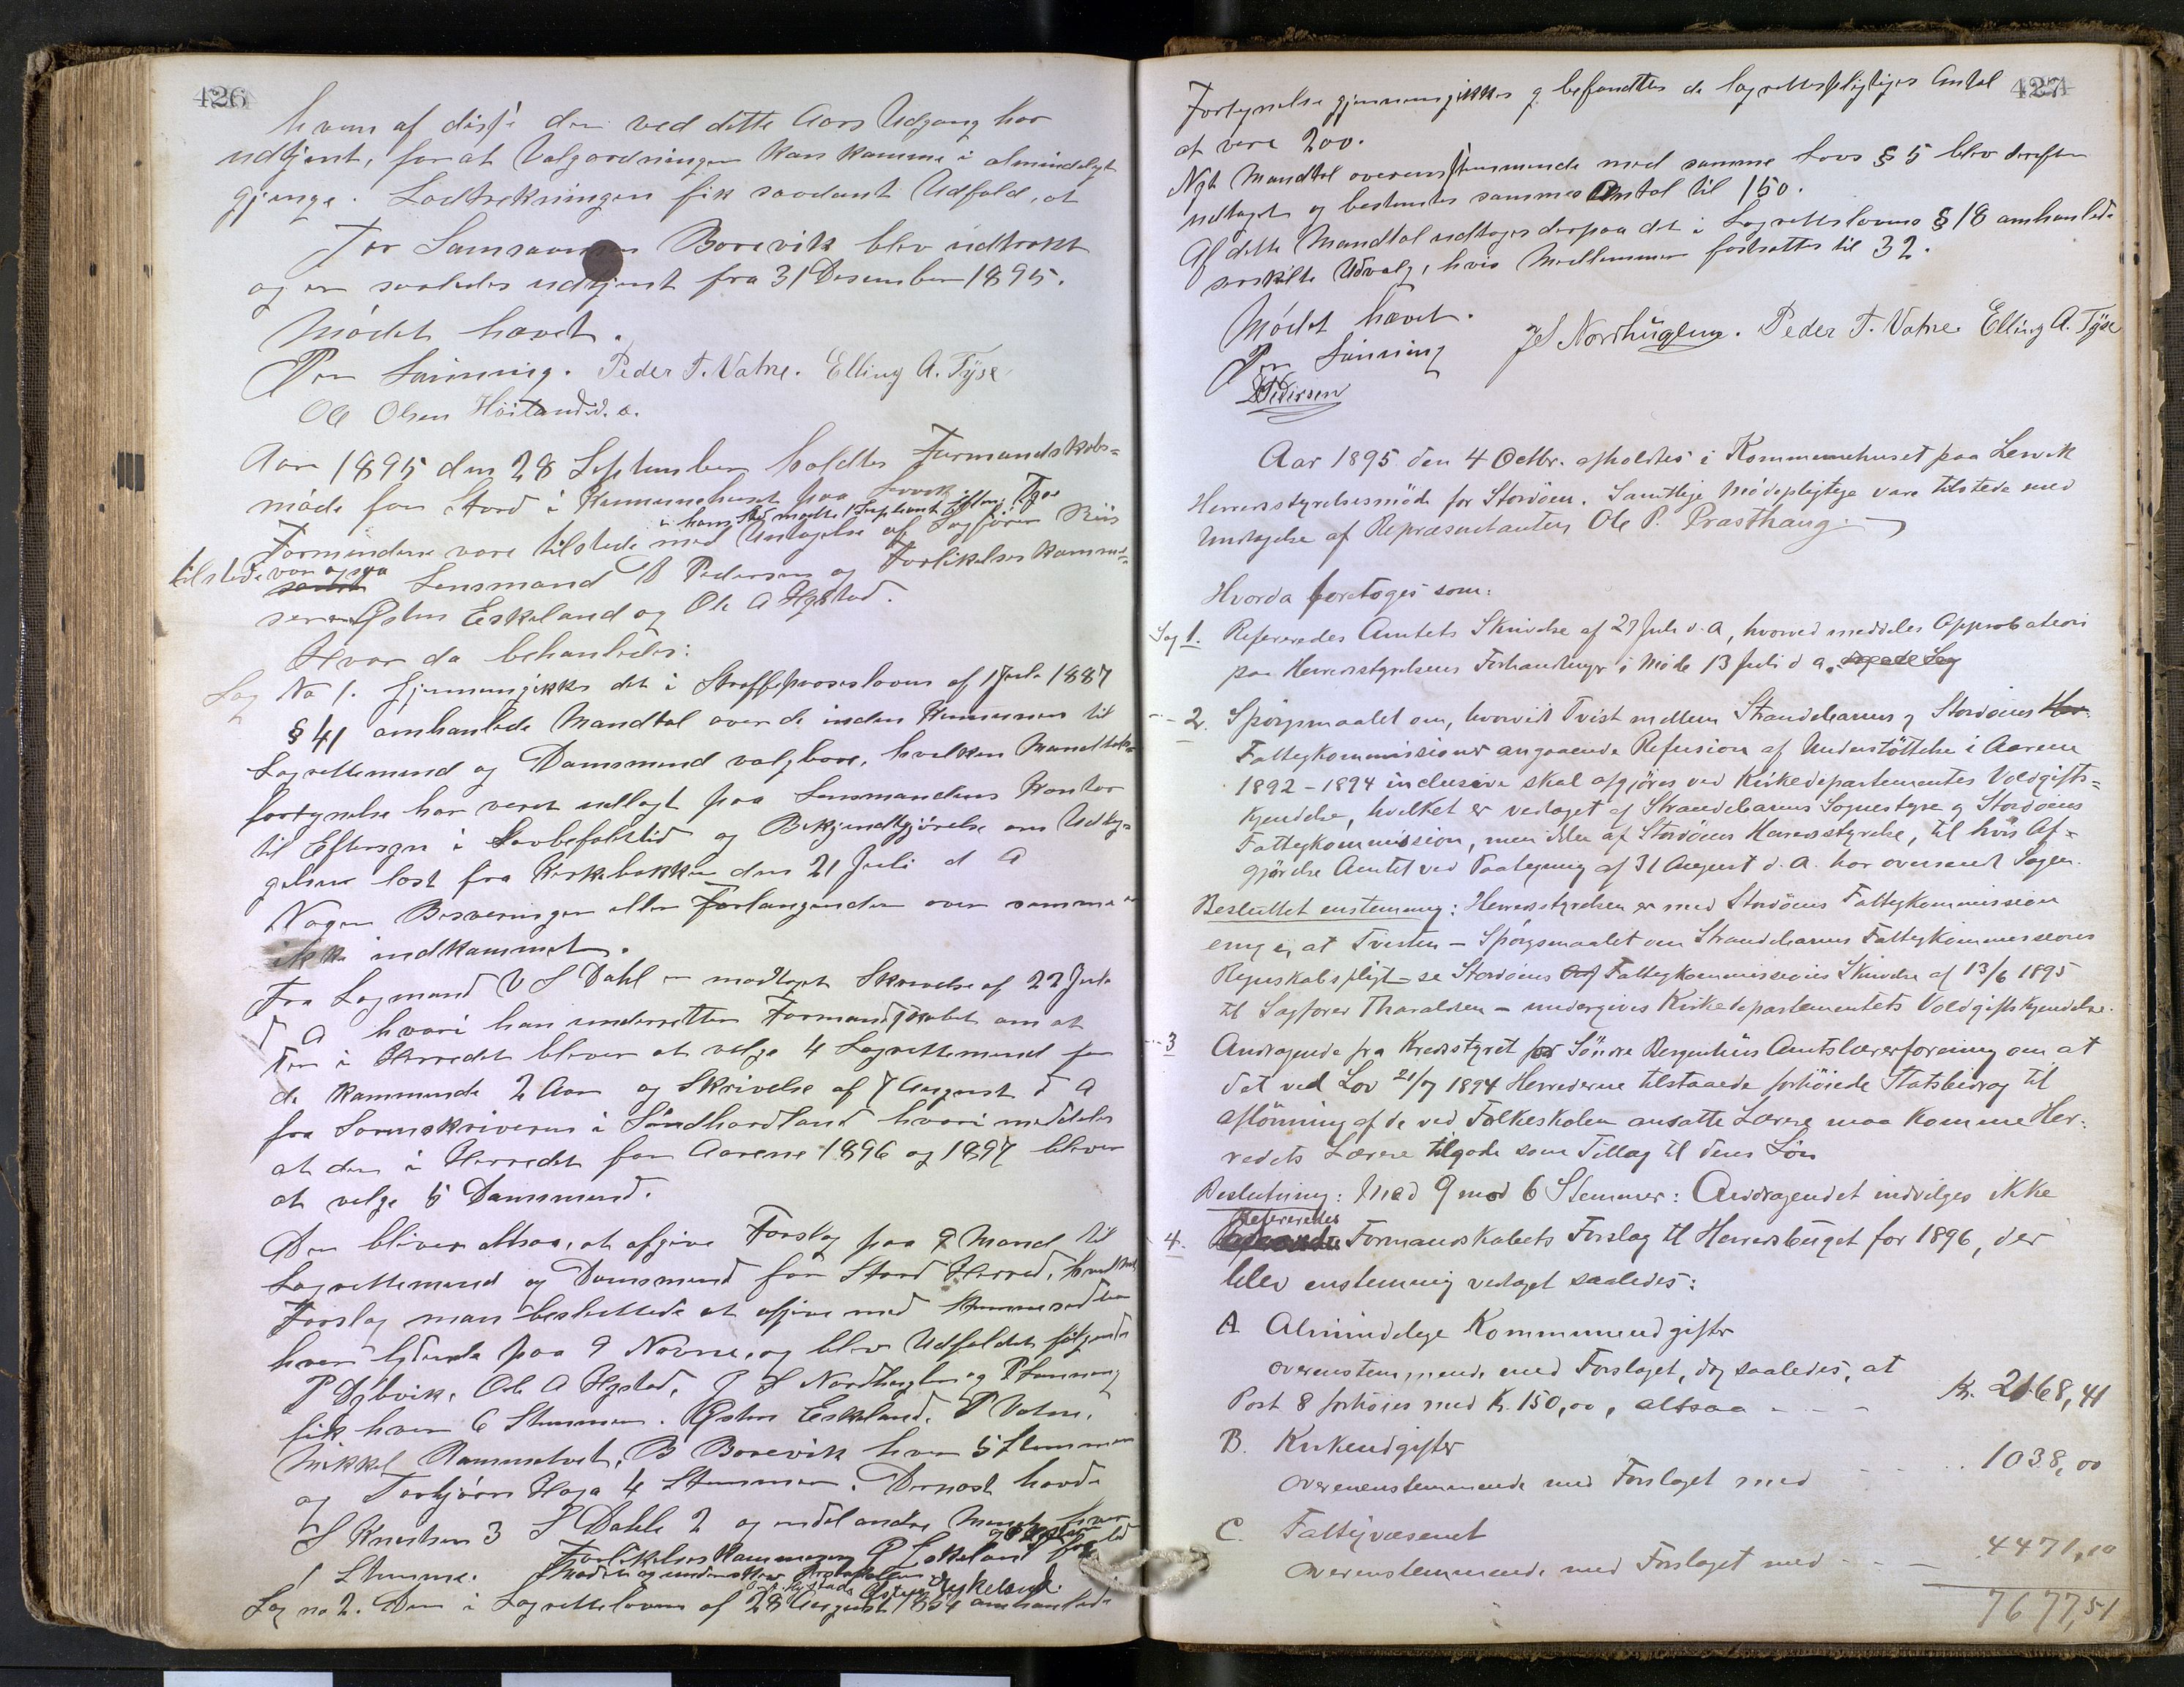 426
hvem af disse der ved dette Aars Udgang har
udtjent, for at Valgordningen kan komme i almindelig
gjenge. Lodtrekningen fik saadant Udfald, at
Tør Samsonsen Borevik blev udtrukt
og er saaledes udtjent fra 31 Desember 1895.
Mødet hævet.
Per Lønning. Peder T. Vatne. Elling A. Tyse
Ole Olsen Høiland d. æ.
Aar 1895 den 28 September holdtes Formandskabs-
møde for Stord i Kommunehuset paa Lervik
i hans Sted mødte 1 Supleant Elling Tyse
Formændene vare tilstede med Untagelse af Sagfører Riis
tilstede var ogsaa
Lensmand D Pedersen og Forlikelseskommis-
serer Østen Eskeland og Ole A Hystad.
Hvor da behanledes:
Sag No 1. Gjennemgikks det i Straffeproseslovens af 1 Juli 1887
§ 41 omhanlede Mandtal over de inden Kommunen til
Lagrettemend og Domsmend valgbare, hvilken Mandtals-
fortegnelse har veret udlagt paa Lensmandens Kontor
til Eftersyn i Lovbefalt tid og Bekjendtgjørelse om Udleg-
gelsen lest fra Kirkebakken den 21 Juli d A
Nogen Besveringer eller Forlangender over samme er
ikke indkommet.
Fra Lagmand V S Dahl er modtaget Skrivelse af 22 Juli
d A hvori han underretter Formandskabet om at
der i Herredet bliver at velge 4 Lagrettemend for
de kommende 2 Aar og Skrivelse af 7 August d A
fra Sorenskriveren i Søndhordland hvori meddeles
at der i Herredet for Aarene 1896 og 1897 bliver
at velge 5 Domsmend.
Der bliver altsaa, at afgive Forslag paa 9 Mand til
Lagrettemend og Domsmend for Stord Herred, hvilket
Forslag man besluttede at afgive med Stemmesedler
hver lydende paa 9 Navne, og blev Udfaldet følgende
P Dybvik, Ole A Hystad, J S Nordhuglen og P Lønning
fik hver 6 Stemmer. Østen Eskeland, P Vatne,
Mikkel Rommetvet, B Borevik hver 5 Stemmer
og Torbjørn Haga 4 Stemmer. Dernest havde
S Knutsen 3 S Dahle 2 og endel andre Mend hver
1 Stemme. Forlikelseskommissær Ø Eskeland
O. A. Hystad Østen Eskeland.
Sag no 2. Den i Lagretteloven af 28 August 1854 omhanlede
427
Fortegnelse gjennemgikkes og befandtes de lagrettespligtiges Antal
at vere 200.
Nyt Mandtal overensstemmende med samme Lovs § 5 blev derefter
udtaget og bestemtes sammes Antal til 150.
Af dette Mandtal udtoges derpaa det i Lagrettelovens § 18 omhanlede
serskilte Udvalg, hvis Medlemmer fastsattes til 32.
Mødet hævet.
Per Lønning JS Nordhuglen. Peder T. Vatne. Elling A. Tyse
D Pedersen
Aar 1895 den 4 Octbr. afholdtes i Kommunehuset paa Lervik
Herredsstyrelsesmöde for Stordöen. Samtlige Mödepligtige vare tilstede med
Undtagelse af Repræsentanten Ole P. Præsthaug.
Hvorda foretoges som:
Sag 1. Refereredes Amtets Skrivelse af 27 Juli d. A, hvorved meddeles Approbation
paa Herredsstyrelsens Forhandlinger i Möde 13 Juli d a.
2. Spörgsmaalet om, hvorvidt Tvist mellem Strandebarms og Stordöens
Fattigkommissioner angaaende Refusion af Understöttelse i Aarene
1892 - 1894 inclusive skal afgjöres ved Kirkedepartementets Voldgifts-
kjendelse, hvilket er vedtaget af Strandebarms Sognestyre og Stordöens
Fattigkommission, men ikke af Stordöens Herredsstyrelse, til hvis Af-
gjörelse Amtet ved Paategning af 31 August d. A. har oversendt Sagen.
Besluttet enstemmig: Herredsstyrelsen er med Stordöens Fattigkommission
enig i, at Tvisten - Spörgsmaalet om Strandebarms Fattigkommissions
Regnskabspligt - se Stordöens Fattigkommissions Skrivelse af 13/6 1895
til Sagförer Tharaldsen - undergives Kirkedepartementets Voldgiftskjendelse.
3 Andragende fra Kredsstyret for Söndre Bergenhus Amtslærerforening om at
det ved Lov 21/7 1894 Herrederne tilstaaede forhöiede Statsbidrag til
aflönning af de ved Folkeskolen ansatte Lærere maa komme Her-
redets Lærere tilgode som Tillæg til deres Lön
Beslutning: Med 9 mod 6 Stemmer: Andragendet indvilges ikke
Refereredes
4. Formandskabets Forslag til Herredsbuget for 1896, der
blev enstemmig vedtaget saaledes:
A Almindelige Kommuneudgifter
overenstemmende med Forslaget, dog saaledes, at
Post 8 forhöies med Kr. 150,00, altsaa - - - Kr. 2168,41
B. Kirkeudgifter
overenenstemmende med Forslaget med - - - 1038,00
C. Fattigvæsenet
overenstemmende med Forslaget med - - - 4471,10
7677,51